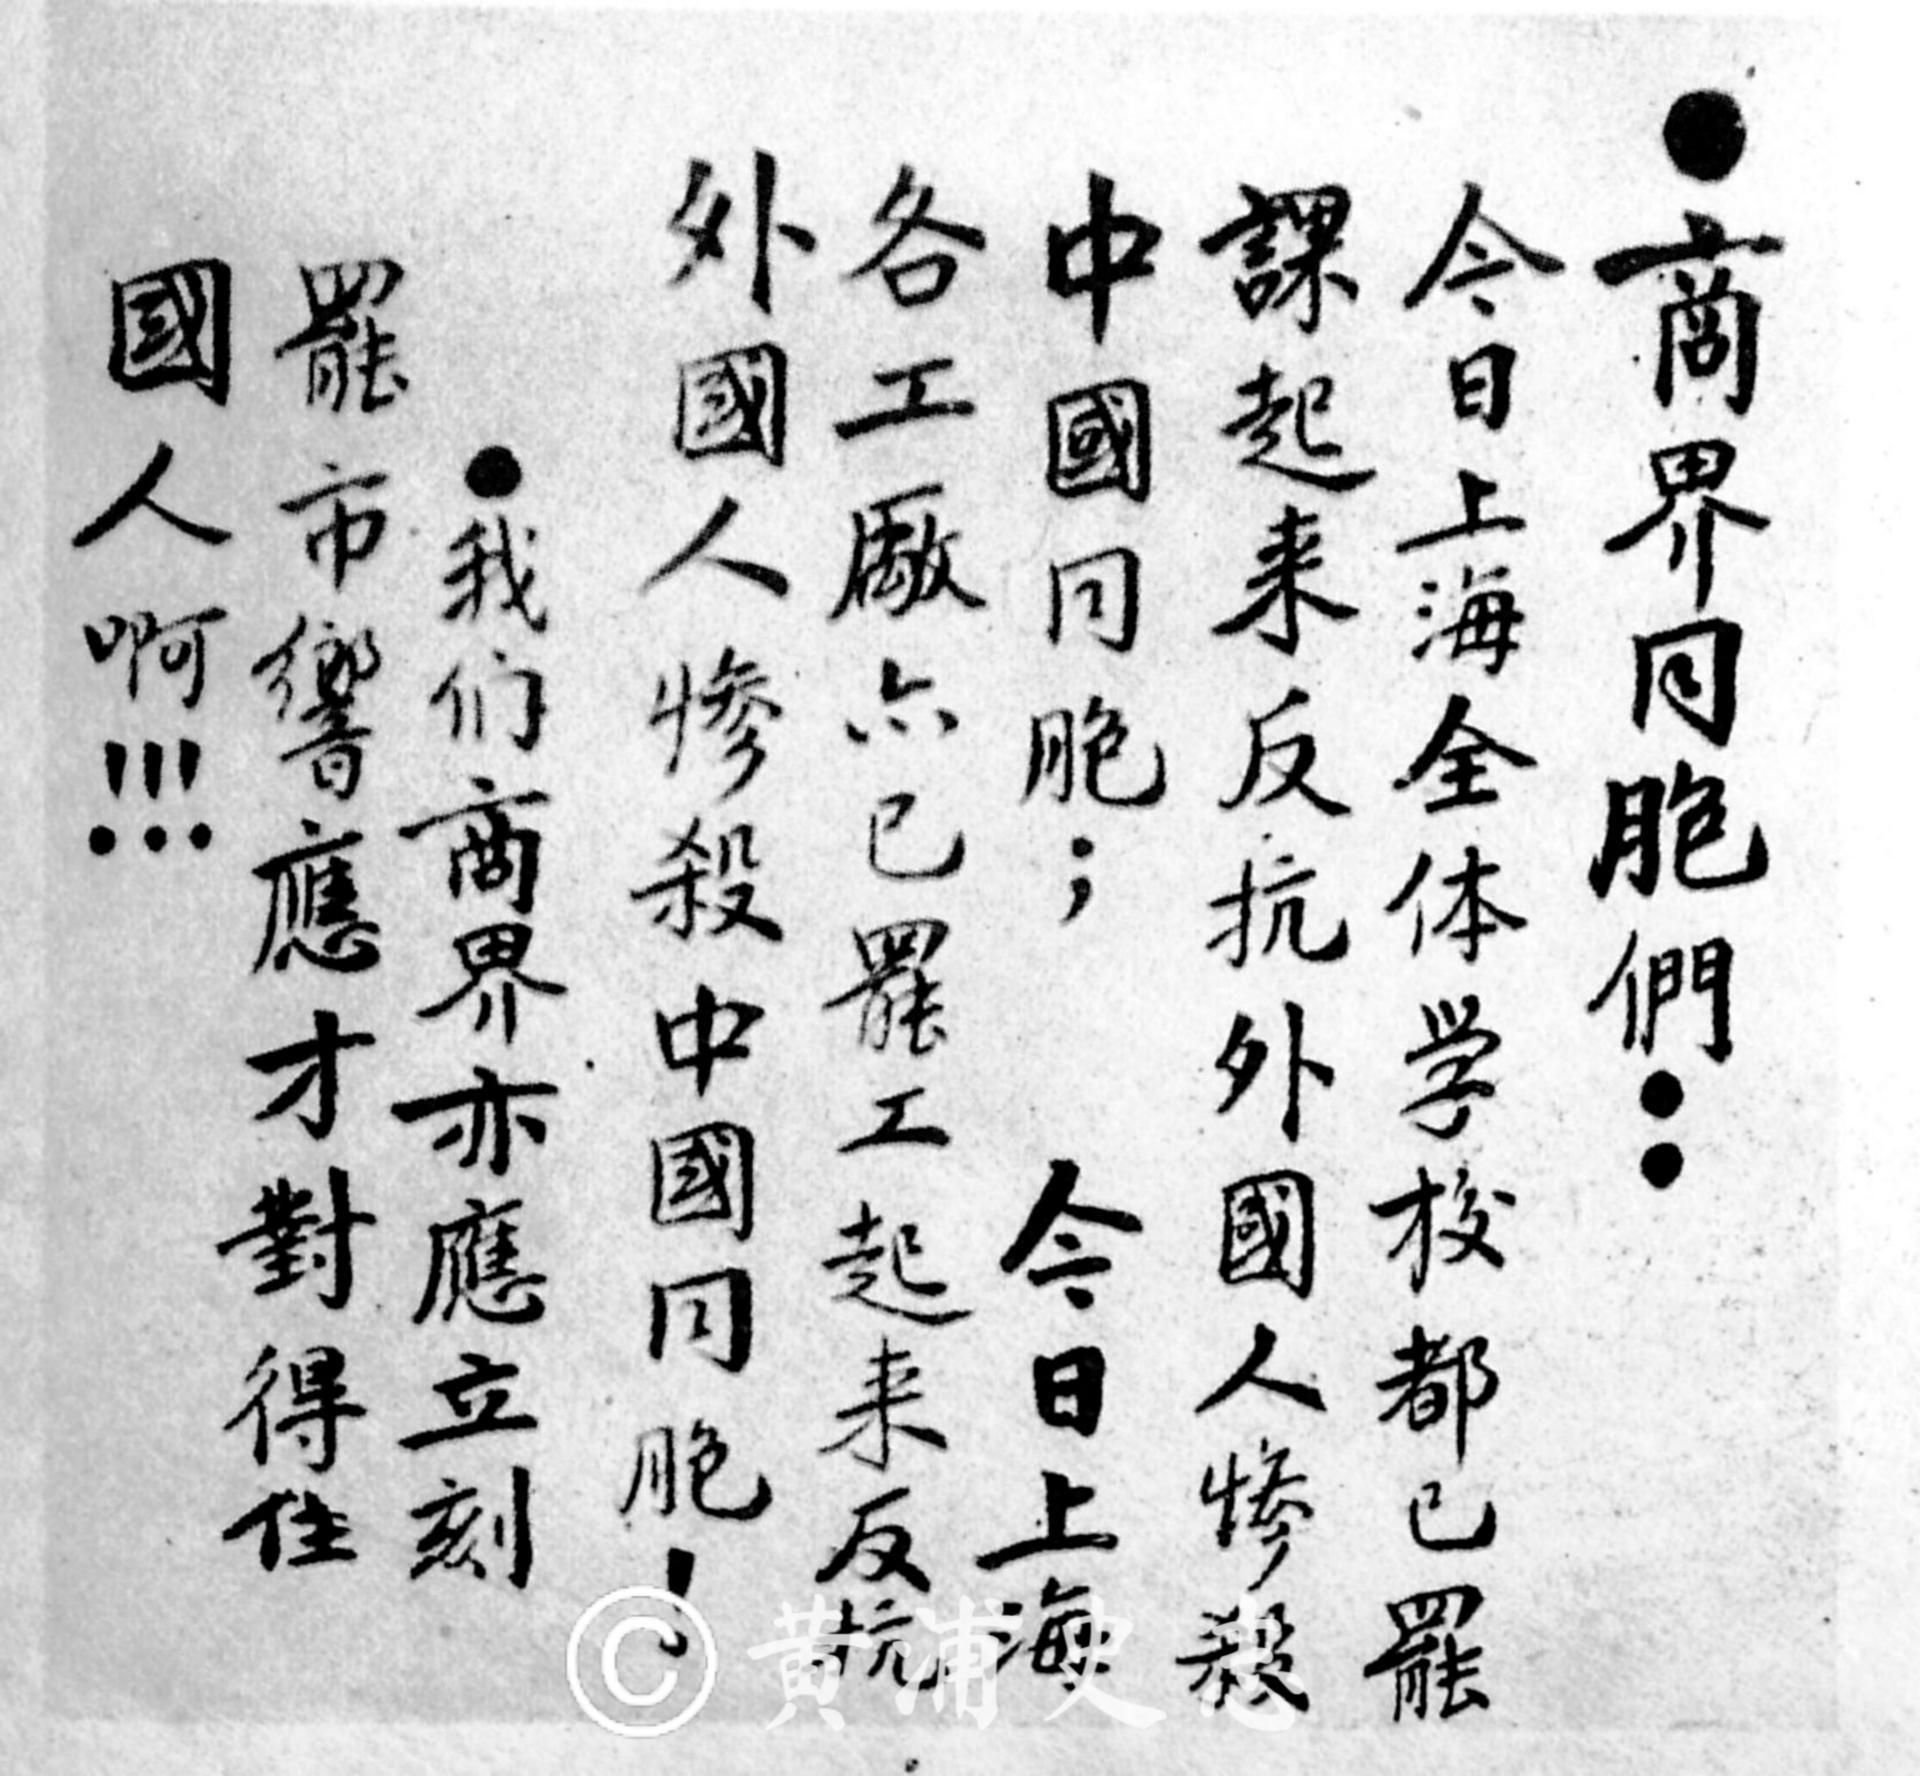 ●商界同胞們：
今日上海全体学校都已罷
課起来反抗外國人慘殺
中國同胞；　今日上海
各工廠亦已罷工起来反抗
外國人慘殺中國同胞！
●我们商界亦應立刻
罷市響應才對得住
國人啊!!!
© 黄浦史志